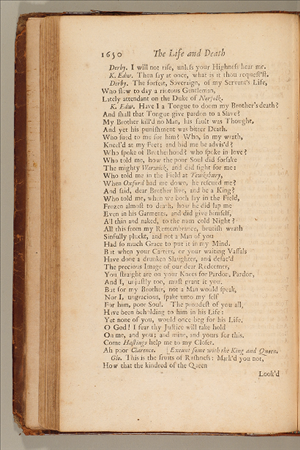 1630 The Life and Death
Derby. I will not rise, unless your Highness hear me.
K. Edw. Then say at once, what is it thou request'st.
Derby. The forfeit, Sovereign, of my Servant's Life,
Who slew to day a riotous Gentleman,
Lately attendant on the Duke of Norfolk.
K. Edw. Have I a Tongue to doom my Brother's death?
And shall that Tongue give pardon to a Slave?
My Brother kill'd no Man, his fault was Thought,
And yet his punishment was bitter Death.
Who sued to me for him? Who, in my wrath,
Kneel'd at my Feet; and bid me be advis'd?
Who spoke of Brotherhood? who spoke of love?
Who told me, how the poor Soul did forsake
The mighty Warwick, and did fight for me?
Who told me in the Field at Tewksbury,
When Oxford had me down, he rescued me?
And said, dear Brother live, and be a King?
Who told me, when we both lay in the Field,
Frozen almost to death, how he did lap me
Even in his Garments, and did give himself,
All thin and naked, to the num cold Night?
All this from my Remembrance, brutish wrath
Sinfully pluckt, and not a Man of you
Had so much Grace to put it in my Mind.
But when your Carters, or your waiting Vassals
Have done a drunken Slaughter, and defac'd
The precious Image of our dear Redeemer,
You straight are on your Knees for Pardon, Pardon,
And I, unjustly too, must grant it you.
But for my Brother, not a Man would speak,
Nor I, ungracious, spake unto my self
For him, poor Soul. The proudest of you all,
Have been beholding to him in his Life:
Yet none of you, would once beg for his Life.
O God! I fear thy Justice will take hold
On me, and you; and mine, and yours for this.
Come Hastings help me to my Closet.
Ah poor Clarence. [Exeunt some with the King and Queen.
Glo. This is the fruits of Rashness: Mark'd you not,
How that the kindred of the Queen
Look'd